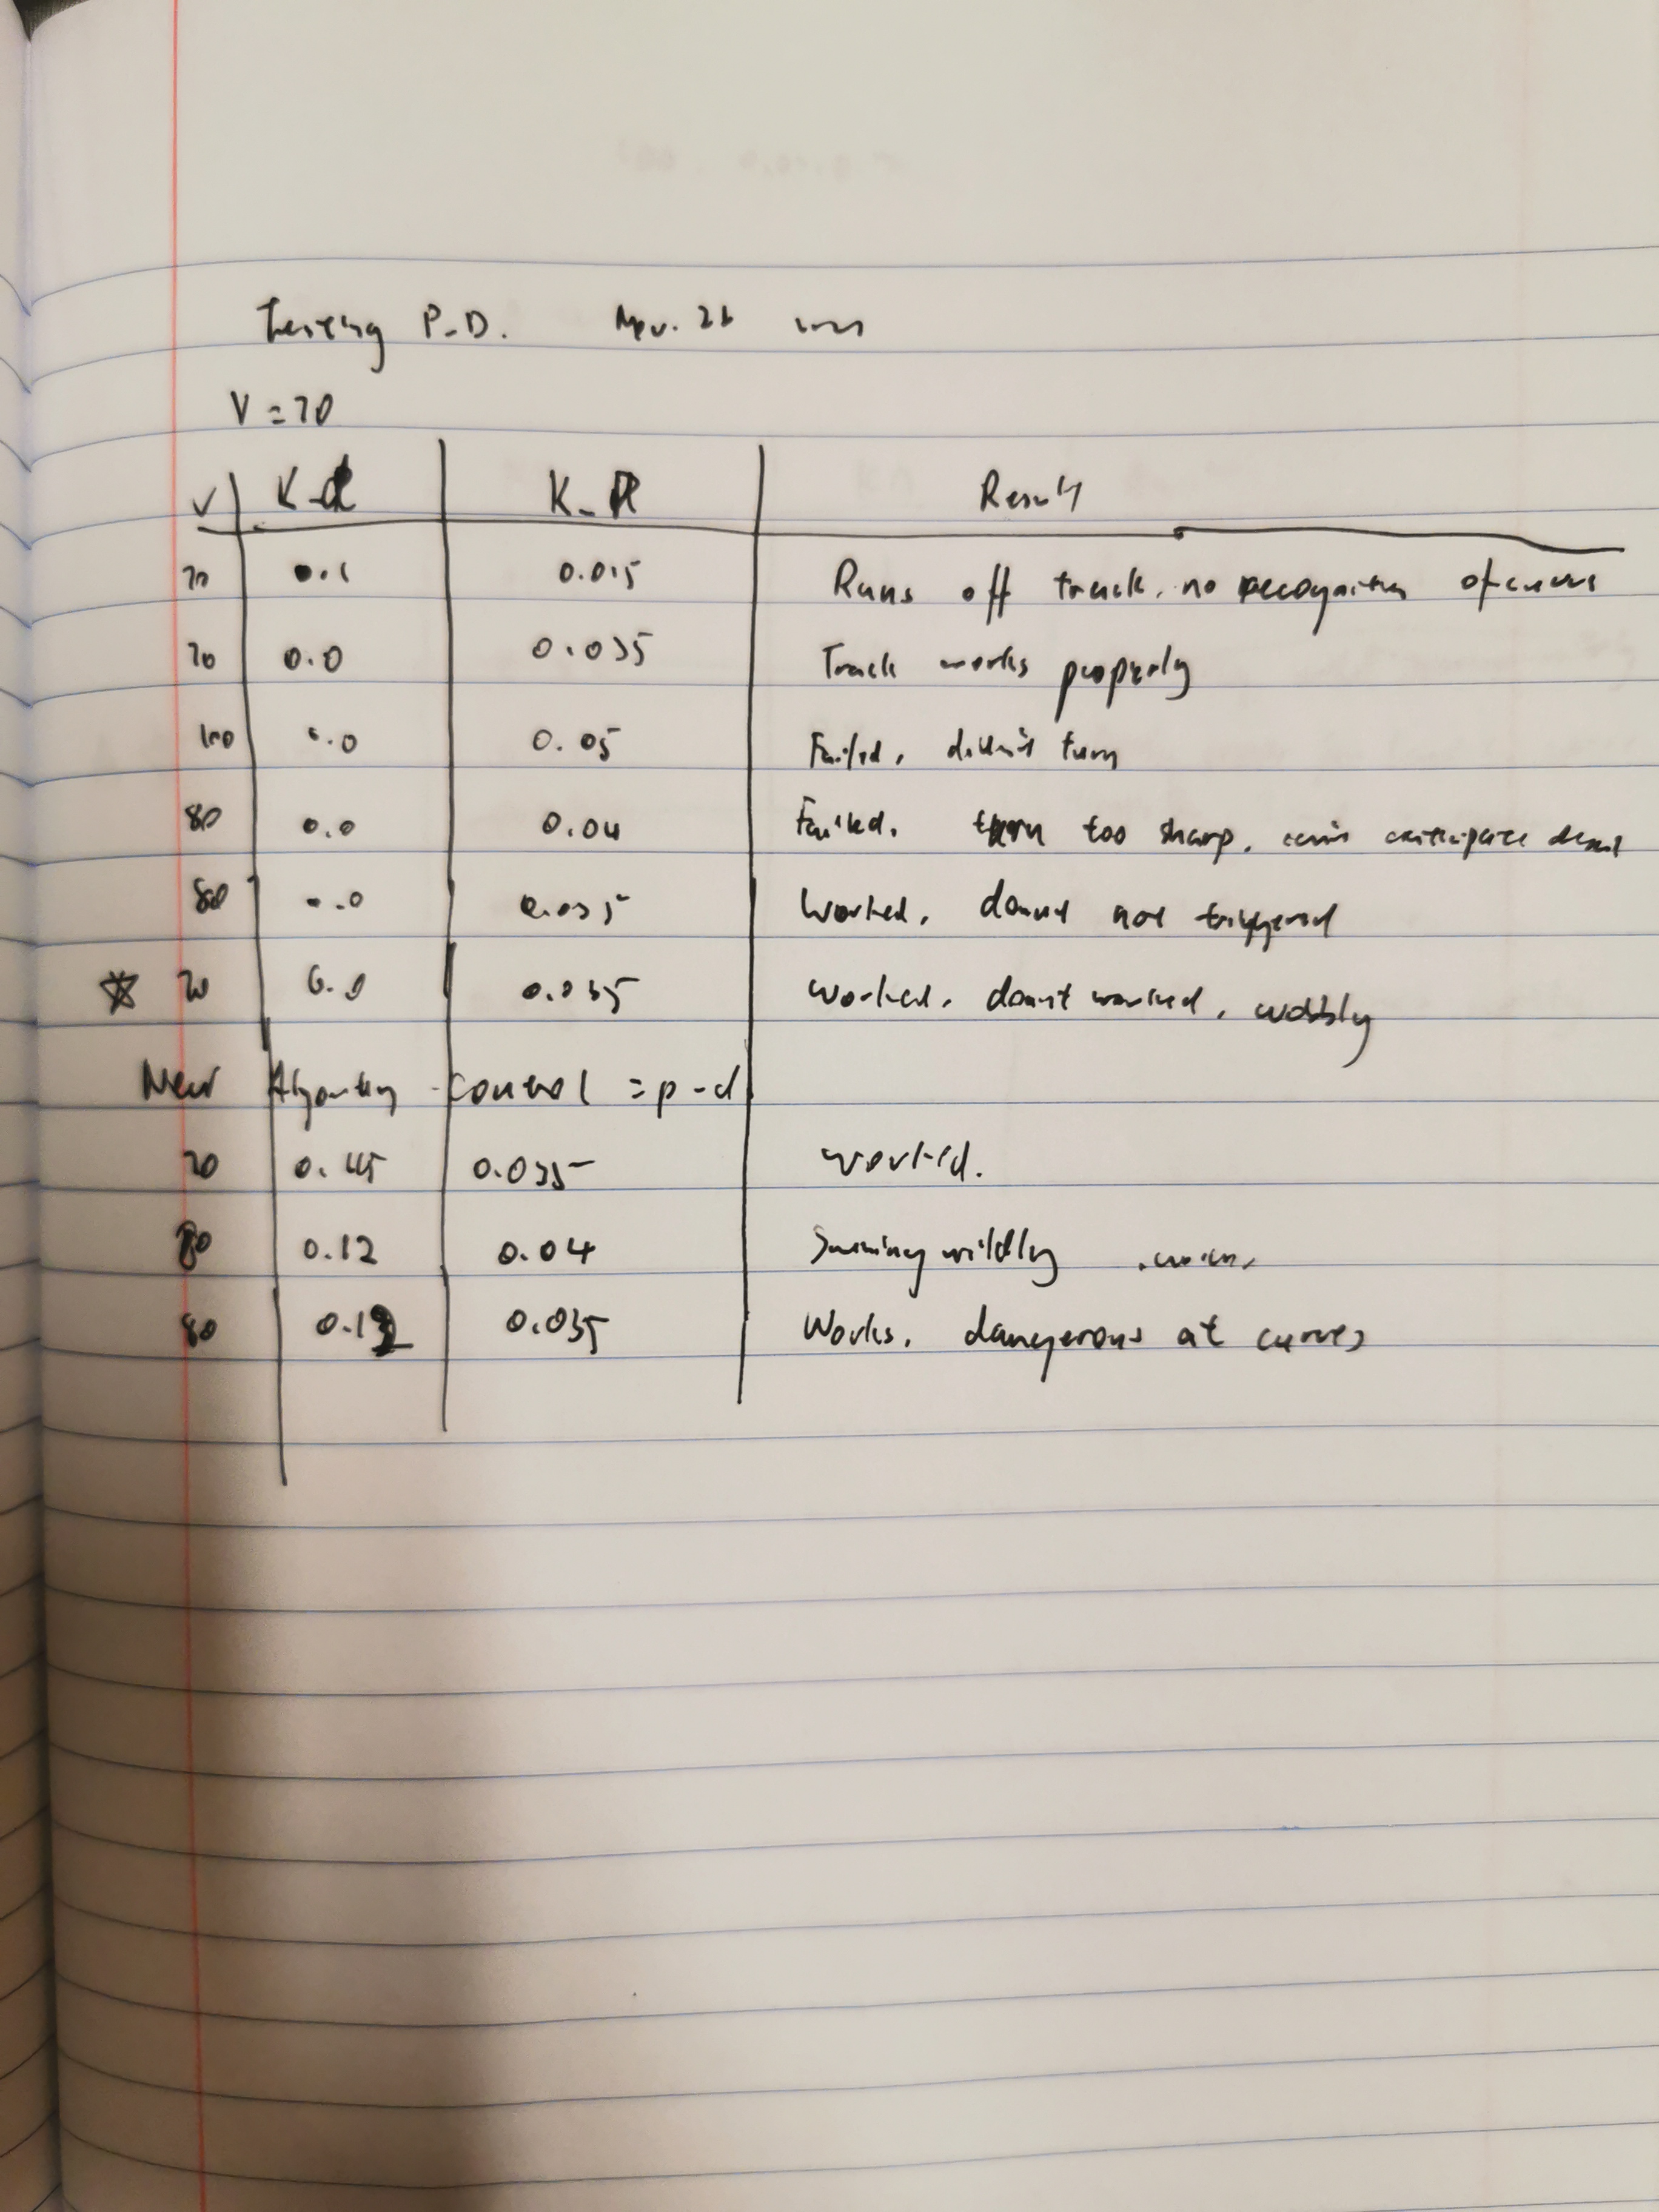 Testing P-D. Apr. 26
V = 70
V K_d K_P Result
70 0.1 0.015 Runs off track, no recognition of curves
70 0.0 0.035 Track works properly
100 0.0 0.05 Failed, didn't turn
80 0.0 0.04 Failed. turn too sharp. can't anticipate
80 0.0 0.035 Worked. not triggered
☆ 70 0.0 0.035 worked. worked, wobbly
New Algorithm - Control = p - d
70 0.115 0.035 worked.
80 0.12 0.04 wildly
80 0.12 0.035 Works. dangerous at curves